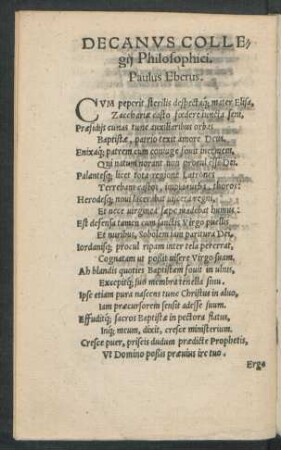 DECANVS COLLE⸗
gij Philosophici.
Paulus Eberus.
CVM peperit sterilis despectaq́; mater Elisa,
Zachariæ casto fœdere iuncta seni,
Præsidijs cunas tunc auxiliaribus orbat
Baptistæ, patrio texit amore Deus.
Enixaq́; patrem cum coniuge fouit inermem,
Qui natum norant non procul esse Dei.
Palantesq́; licet tota regione Latrones
Terrebant castos, thoros:
Herodesq́; noui liceribat viscera regni,
Et nece virginea sæpe madebat humus:
Est defensa tamen cum sanctis Virgo puellis
Et nuribus, Sobolem iam paritura Dei,
Iordanisq́; procul ripam inter tela pererrat,
Cognatam ut possit visere Virgo suam.
Ab blandis quoties Baptistam fouit in vlnis,
Excepitq́; suo membra tenella sinu.
Ipse etiam pura nascens tunc Christus in aluo,
Iam præcursorem sensit adesse suum.
Effuditq́; sacros Baptistæ in pectora flatus,
Inq́; meum, dixit, cresce ministerium.
Cresce puer, priscis dudum prædicte Prophetis,
Vt Domino possis præuius ire tuo.
Ergo